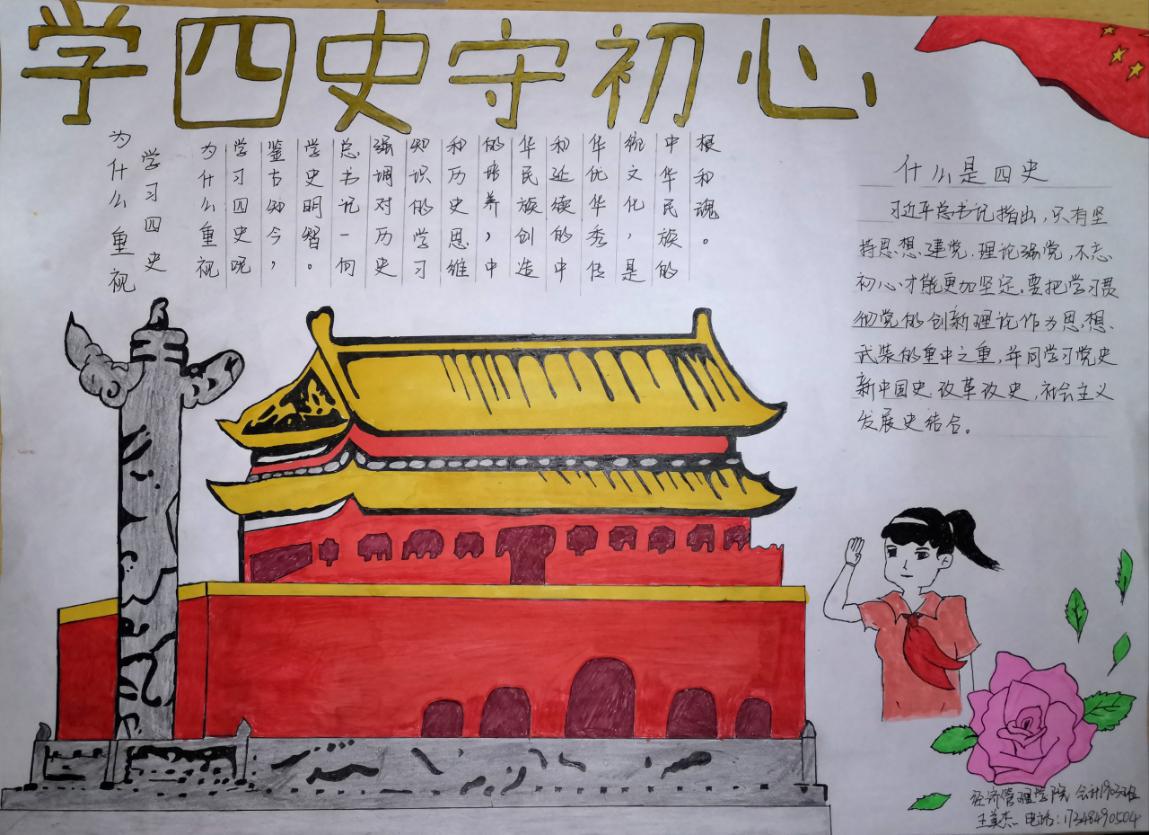 学四史守初心
为什么重视
学习四史
为什么重视
学习四史呢
鉴古知今，
学史明智。
总书记一向
强调对历史
知识的学习
和历史思维
的培养，中
华民族创造
和延续的中
华优华秀传
统文化，是
中华民族的
根和魂。
什么是四史
习近平总书记指出，只有坚
持思想建党.理论强党，不忘
初心才能更加坚定，要把学习贯
彻党的创新理论作为思想.
武装的重中之重，并同学习党史
新中国史.改革改史，社会主义
发展史结合。
经济管理学院
电话：17348490504